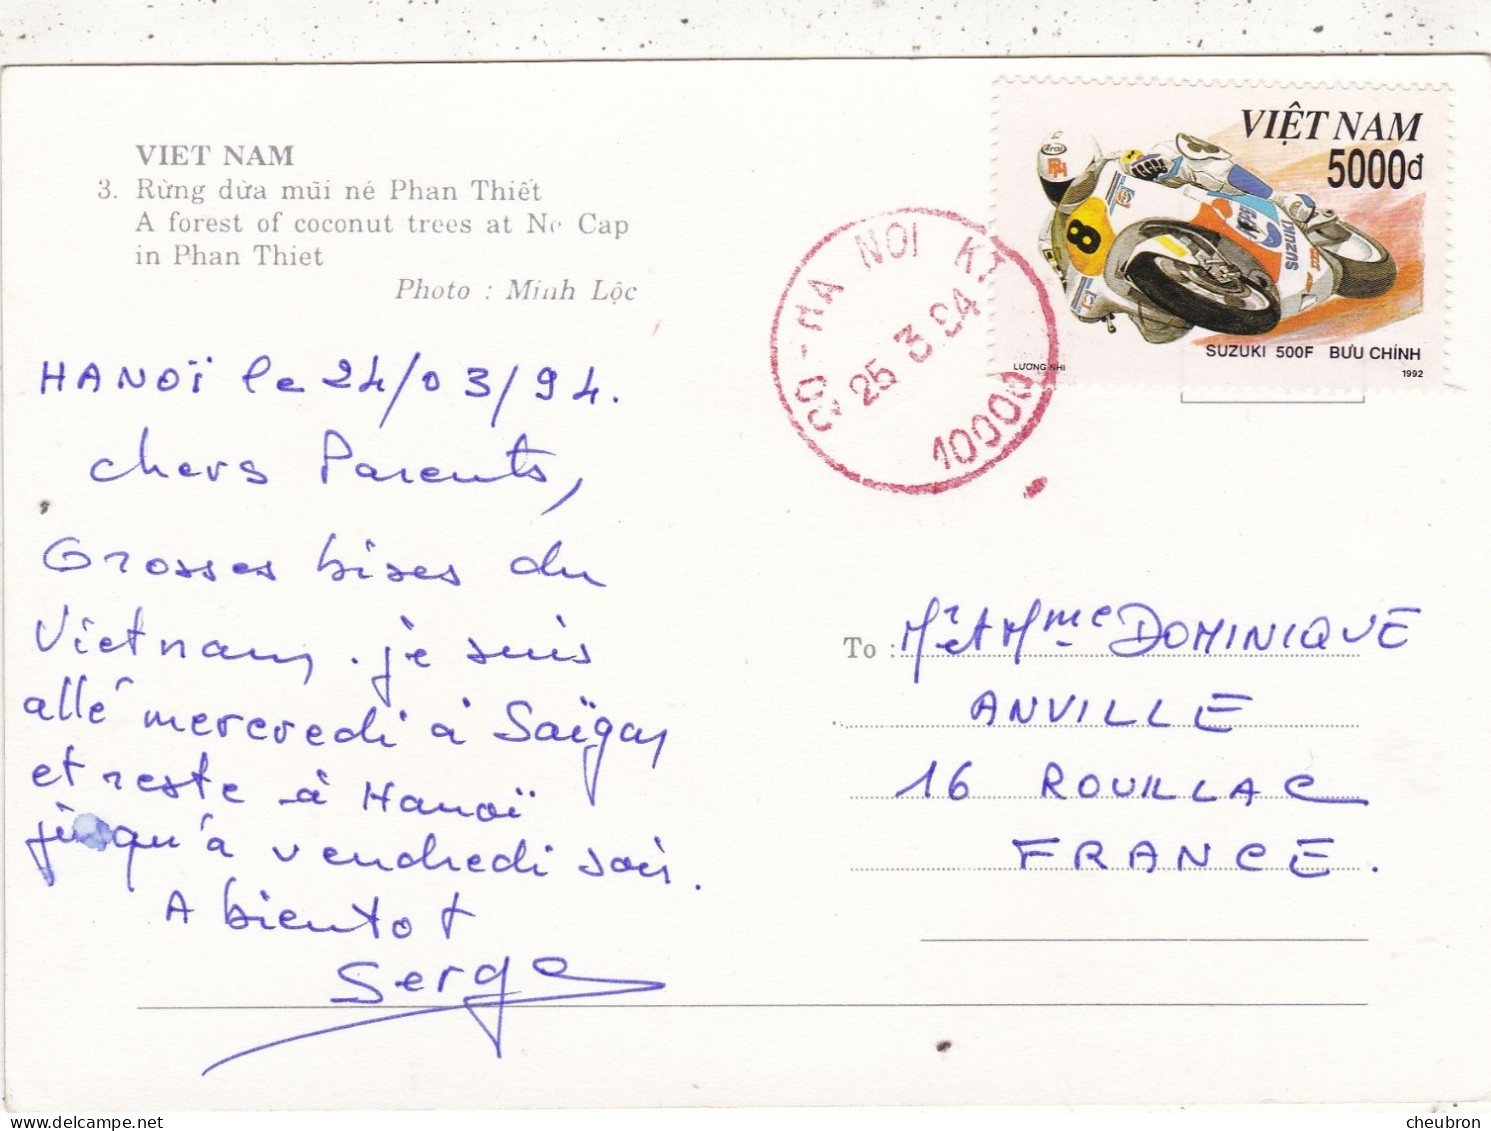 VIET NAM
3. Rừng dừa mũi né Phan Thiết
A forest of coconut trees at Ne Cap
in Phan Thiet
Photo : Minh Lộc
HANOÏ le 24/03/94.
chers Parents,
Grosses bises du
Vietnam. je suis
allé mercredi à Saïgon
et reste à Hanoï
jusqu'à vendredi soir.
A bientot
Serge
HA NOI KT
25 3 94
10000
VIỆT NAM
5000đ
Arai
8
SUZUKI
SUZUKI 500F BƯU CHÍNH
LƯƠNG NHI
1992
To : Mr et Mme DOMINIQUE
ANVILLE
16 ROUILLAC
FRANCE.
cheubron
www.delcampe.net